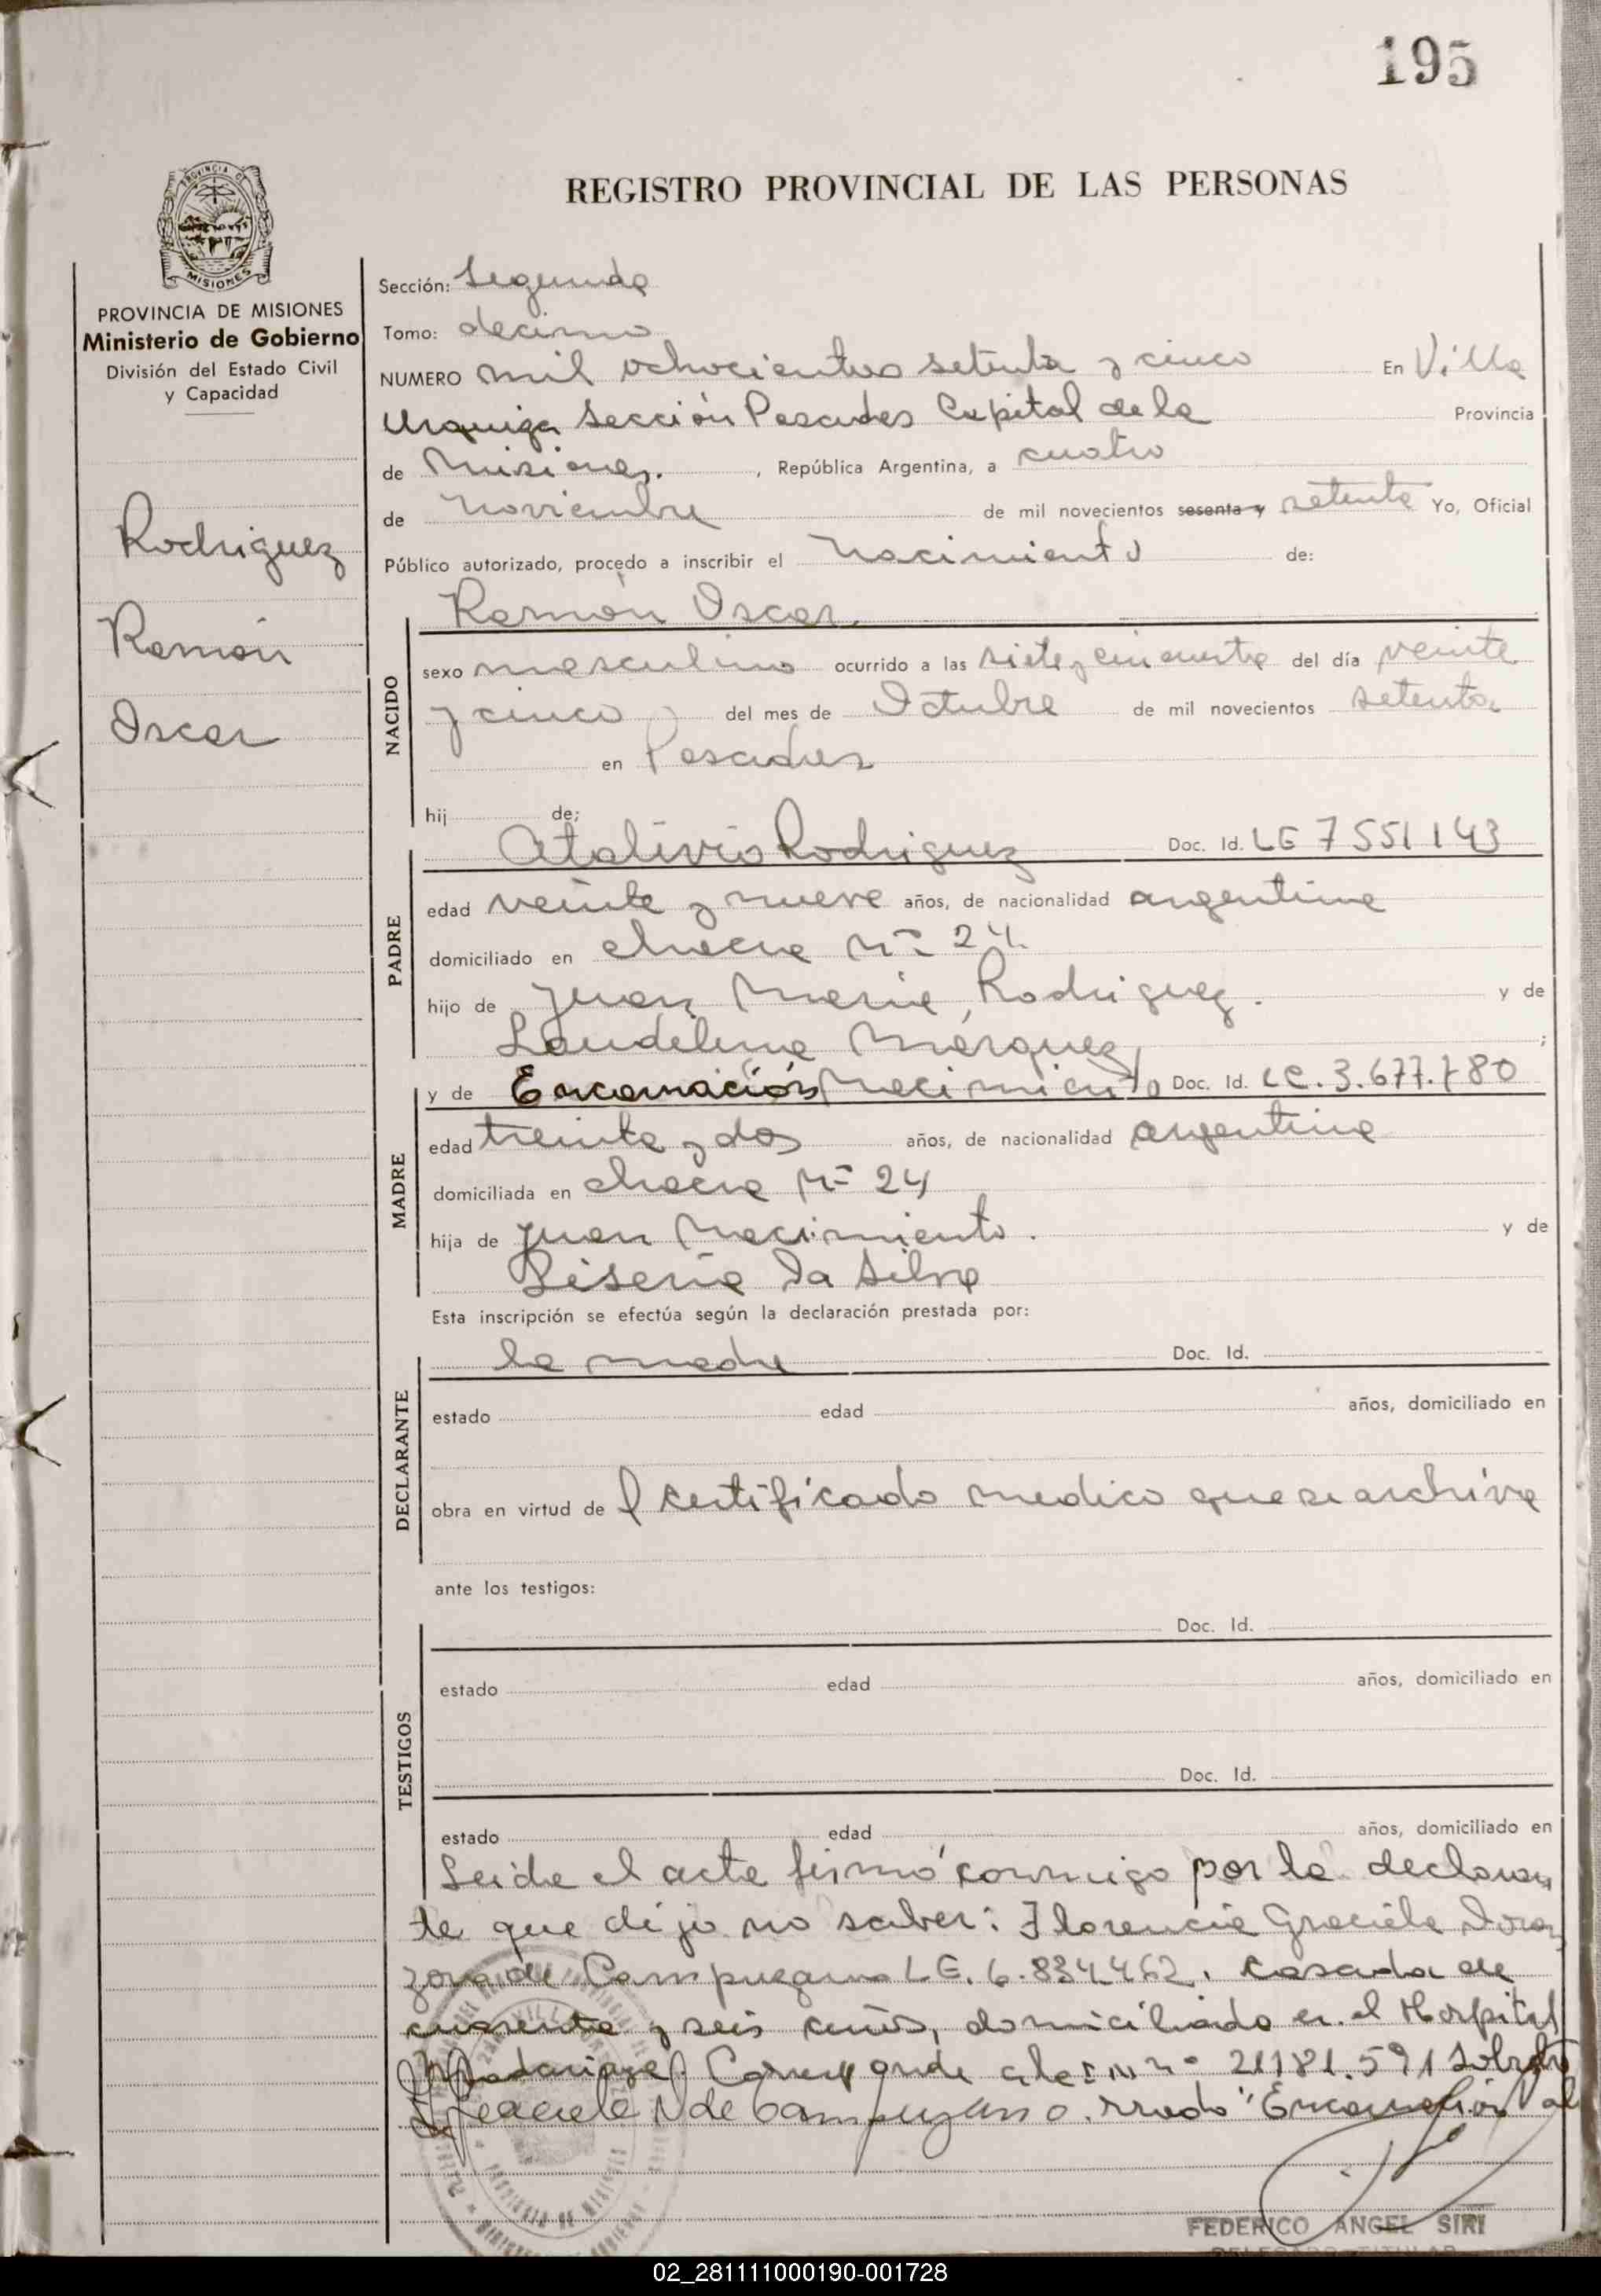 195
REGISTRO PROVINCIAL DE LAS PERSONAS
PROVINCIA DE MISIONES
Ministerio de Gobierno
División del Estado Civil
y Capacidad
Rodriguez
Ramón
Oscar
Sección: Segunda
Tomo: decimo
NUMERO mil ochocientos setenta y cinco En Villa
Urquiza Sección Posadas Capital de la Provincia
de Misiones. , República Argentina, a cuatro
de Noviembre de mil novecientos sesenta y setenta Yo, Oficial
Público autorizado, procedo a inscribir el nacimiento de:
Ramón Oscar.
NACIDO
sexo masculino ocurrido a las siete y cincuenta del día veinte
y cinco del mes de Octubre de mil novecientos setenta
en Posadas
hij de;
PADRE
Atalivio Rodriguez Doc. Id. LE 7551143
edad veinte y nueve años, de nacionalidad argentina
domiciliado en chacra Nº 24
hijo de Juan Maria Rodriguez. y de
Laudelina Márquez ;
MADRE
y de Encarnación Nacimiento Doc. Id. LC. 3.677.780
edad treinta y dos años, de nacionalidad argentina
domiciliada en chacra Nº 24
hija de Juan Nacimiento. y de
da Silva
Esta inscripción se efectúa según la declaración prestada por:
DECLARANTE
la madre Doc. Id.
estado edad años, domiciliado en
obra en virtud de l certificado medico que se archiva
ante los testigos:
TESTIGOS
Doc. Id.
estado edad años, domiciliado en
Doc. Id.
estado edad años, domiciliado en
Leida el acta firmó conmigo por la declaran
te que dijo no saber: Florencia Graciela
de Campuzano LE. 6.834.462. casada de
cuarenta y seis años, domiciliado en el Hospital
Madariaga. Corresponde a la 21181.591
de Campuzano. "Encarnación
FEDERICO ANGEL SIRI
DELEGADO TITULAR
02_281111000190-001728